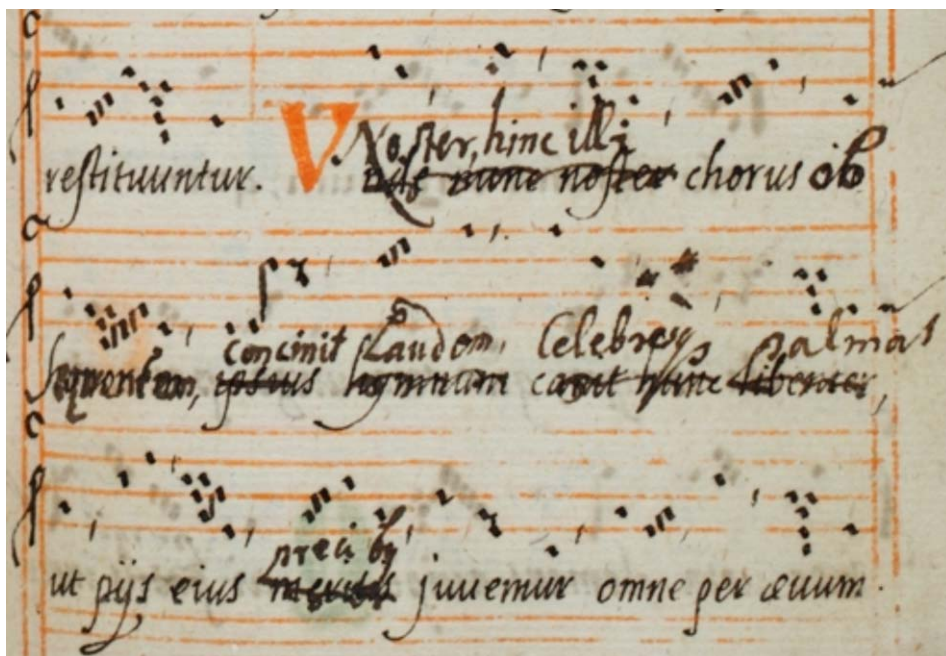 Noster, hinc illi
restituuntur. Vnde nunc noster chorus ob
concinit Laudem, Celebresq palmas
sequentem, ipsius hymnum canit hunc libenter,
precibq
ut pijs eius meritis juuemur omne per æuum.